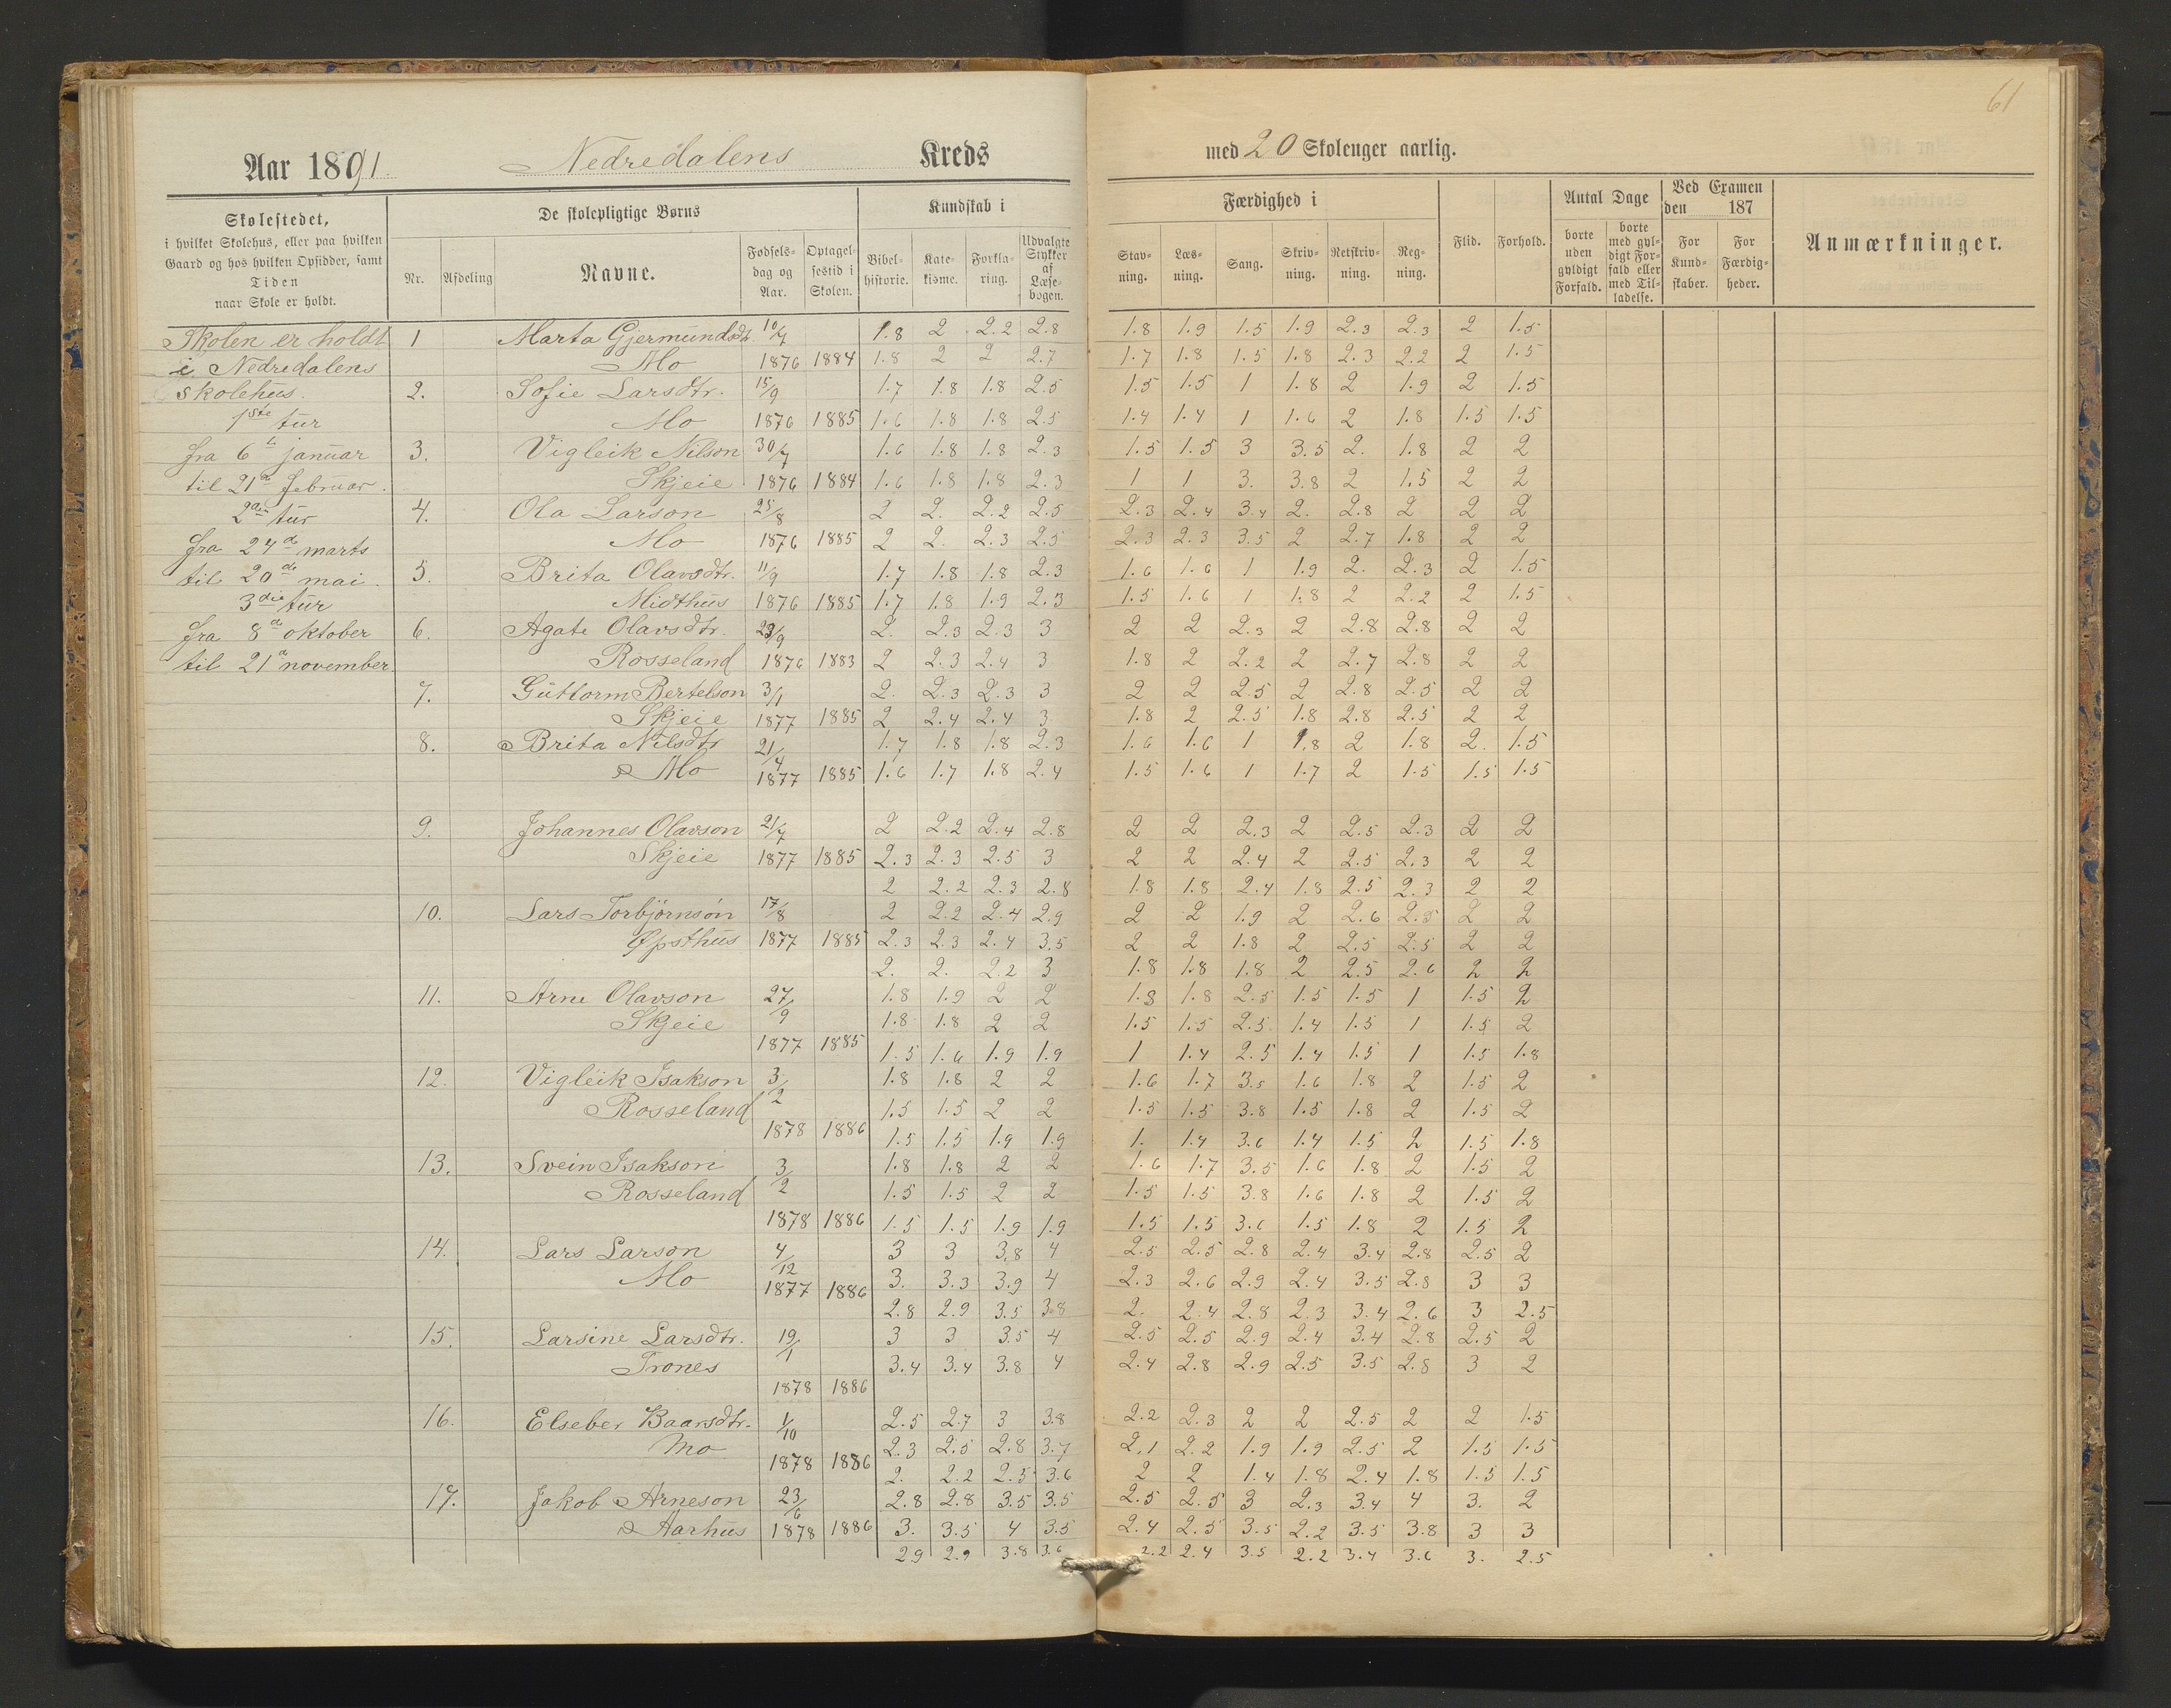 61
Aar 1891. Nedredalens Kreds med 20 Skoleuger aarlig.
Skolestedet,
i hvilket Skolehus, eller paa hvilken
Gaard og hos hvilken Opsidder, samt
Tiden
naar Skole er holdt.
De skolepligtige Børns
Nr. Afdeling Navne. Fødsels-dag og Aar. Optagel-sestid i Skolen.
Kundskab i
Bibel-historie. Kate-kisme. Forkla-ring. Udvalgte Stykker af Læse-bogen.
Færdighed i
Stav-ning. Læs-ning. Sang. Skriv-ning. Retskriv-ning. Reg-ning.
Flid. Forhold.
Antal Dage
borte uden gyldigt Forfald. borte med gyl-digt For-fald eller med Til-ladelse.
Ved Examen
den 187
For Kund-skaber. For Færdig-heder.
Anmærkninger.
Skolen er holdt
i Nedredalens
skolehus.
1ste tur
fra 6te januar
til 21de februar.
2den tur
fra 24de marts
til 20de mai.
3die tur
fra 8de oktober
til 21de november.
1 Marta Gjermundsdt. 10/7 1.8 2 2.2 2.8 1.8 1.9 1.5 1.9 2.3 2.3 2 1.5
Mo 1876 1884 1.8 2 2 2.7 1.7 1.8 1.5 1.8 2.3 2.2 2 1.5
2. Sofie Larsdtr. 15/9 1.7 1.8 1.8 2.5 1.5 1.5 1 1.8 2 1.9 2 1.5
Mo 1876 1885 1.6 1.8 1.8 2.5 1.4 1.4 1 1.6 2 1.8 1.5 1.5
3. Vigleik Nilson 30/7 1.6 1.8 1.8 2.3 1.5 1.5 3 3.5 2. 1.8 2 2
Skjeie 1876 1884 1.6 1.8 1.8 2.3 1 1 3. 3.8 2 1.5 2 2
4. Ola Larson 25/8 2 2. 2.2 2.5 2.3 2.4 3.4 2. 2.8 2 2 2
Mo 1876 1885 2 2. 2.3 2.5 2.3 2.3 3.5 2 2.7 1.8 2 2
5. Brita Olavsdtr. 11/9 1.7 1.8 1.8 2.3 1.6 1.6 1 1.9 2. 2.3 2 1.5
Midthus 1876 1885 1.7 1.8 1.9 2.3 1.5 1.6 1 1.8 2 2.2 2 1.5
6. Agate Olavsdtr. 23/9 2. 2.3 2.3 3 2 2 2.3 2 2.8 2.8 2 2
Rosseland 1876 1883 2 2.3 2.4 3 1.8 2 2.2 2 2.7 2.8 2 2
7. Guttorm Bertelson 3/1 2. 2.3 2.3 3 2 2 2.5 2 2.8 2.5 2 2
Skjeie 1877 1885 2 2.4 2.4 3 1.8 2 2.5 1.8 2.8 2.5 2 2
8. Brita Nilsdtr 21/4 1.7 1.8 1.8 2.3 1.6 1.6 1 1.8 2 1.8 2. 1.5
Mo 1877 1885 1.6 1.7 1.8 2.4 1.5 1.6 1 1.7 2 1.5 1.5 1.5
9. Johannes Olavson 21/7 2 2.2 2.4 2.8 2 2 2.3 2 2.5 2.3 2 2
Skjeie 1877 1885 2.3 2.3 2.5 3 2 2 2.4 2 2.5 2.3 2 2
2 2.2 2.3 2.8 1.8 1.8 2.4 1.8 2.5 2.3 2 2
10. Lars Torbjørnsøn 17/8 2 2.2 2.4 2.9 2 2 1.9 2 2.6 2.5 2 2
Øpsthus 1877 1885 2.3 2.3 2.4 3.5 2 2 1.8 2 2.5 2.5 2 2
2. 2. 2.2 3 1.8 1.8 1.8 2 2.5 2.6 2 2
11. Arne Olavson 27/9 1.8 1.9 2 2 1.8 1.8 2.5 1.5 1.5 1 1.5 2
Skjeie 1.8 1.8 2 2 1.5 1.5 2.5 1.4 1.5 1 1.5 2
1877 1885 1.5 1.6 1.9 1.9 1 1.4 2.5 1.4 1.5 1 1.5 1.8
12. Vigleik Isakson 3/2 1.8 1.8 2 2 1.6 1.7 3.5 1.6 1.8 2 1.5 2
Rosseland 1.5 1.5 2 2 1.5 1.5 3.8 1.5 1.8 2 1.5 2
1878 1886 1.5 1.5 1.9 1.9 1. 1.4 3.6 1.4 1.5 2 1.5 1.8
13. Svein Isakson 3/2 1.8 1.8 2 2 1.6 1.7 3.5 1.6 1.8 2 1.5 2
Rosseland 1.5 1.5 2 2 1.5 1.5 3.8 1.6 1.8 2 1.5 2
1878 1886 1.5 1.5 1.9 1.9 1.5 1.5 3.6 1.5 1.8 2 1.5 2
14. Lars Larson 4/12 3 3 3.8 4 2.5 2.5 2.8 2.4 3.4 2.8 2.5 2
Mo 1877 1886 3. 3.3 3.9 4 2.3 2.6 2.9 2.4 3.5 2.8 3 3
2.8 2.9 3.5 3.8 2. 2.4 2.8 2.3 3.4 2.6 3 2.5
15. Larsine Larsdtr. 19/1 3 3 3.5 4 2.5 2.5 2.9 2.4 3.4 2.8 2.5 2
Trones 3.4 3.4 3.8 4 2.4 2.8 2.9 2.5 3.5 2.8 3 2
1878 1886
16. Elseber Baarsdtr. 1/10 2.5 2.7 3 3.8 2.2 2.3 2 2 2.5 2 2 1.5
Mo 2.3 2.5 2.8 3.7 2.1 2.2 1.9 1.9 2.5 2 1.5 1.5
1878 1886 2. 2.2 2.5 3.6 2 2 1.4 1.8 2.4 1.8 1.5 1.5
17. Jakob Arneson 23/6 2.8 2.8 3.5 3.5 2.5 2.5 3 2.3 3.4 4 3. 2
Aarhus 1878 1886 3. 3.5 4 3.5 2.4 2.5 3.5 2.2 3.5 3.8 3 3
2.9 2.9 3.8 3.6 2.2 2.4 3.5 2.2 3.4 3.6 3. 2.5